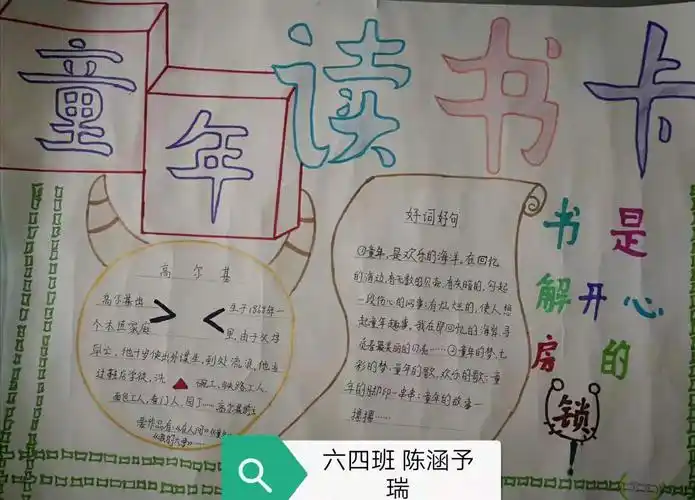 童年读书卡
高尔基
高尔基出 生于1868年一
个木匠家庭 里,由于父母
早亡,他十岁便出外谋生,到处流浪,他当
过鞋店学徒,洗 碗工,铁路工人
面包工人,看门人,园丁……高尔基的主
要作品有:《在人间》《童年》
《我的大学》……
好词好句
①童年,是欢乐的海洋,在回忆
的海边,有无数的贝壳,有灰暗的,勾起
一段伤心的回事;有灿烂的,使人想
起童年趣事,我在那回忆的海岸,寻
觅着最美丽的贝壳……②童年的梦,七
彩的梦;童年的歌,欢乐的歌;童
年的脚印一串串;童年的故事一
摞摞……
书是
解开心
房的
锁
六四班 陈涵予
瑞